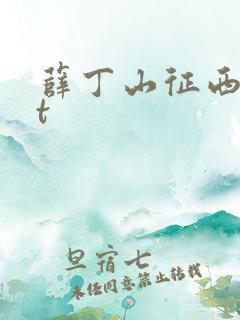 薛丁山征西
t
旦宿七
未经同意禁止转载